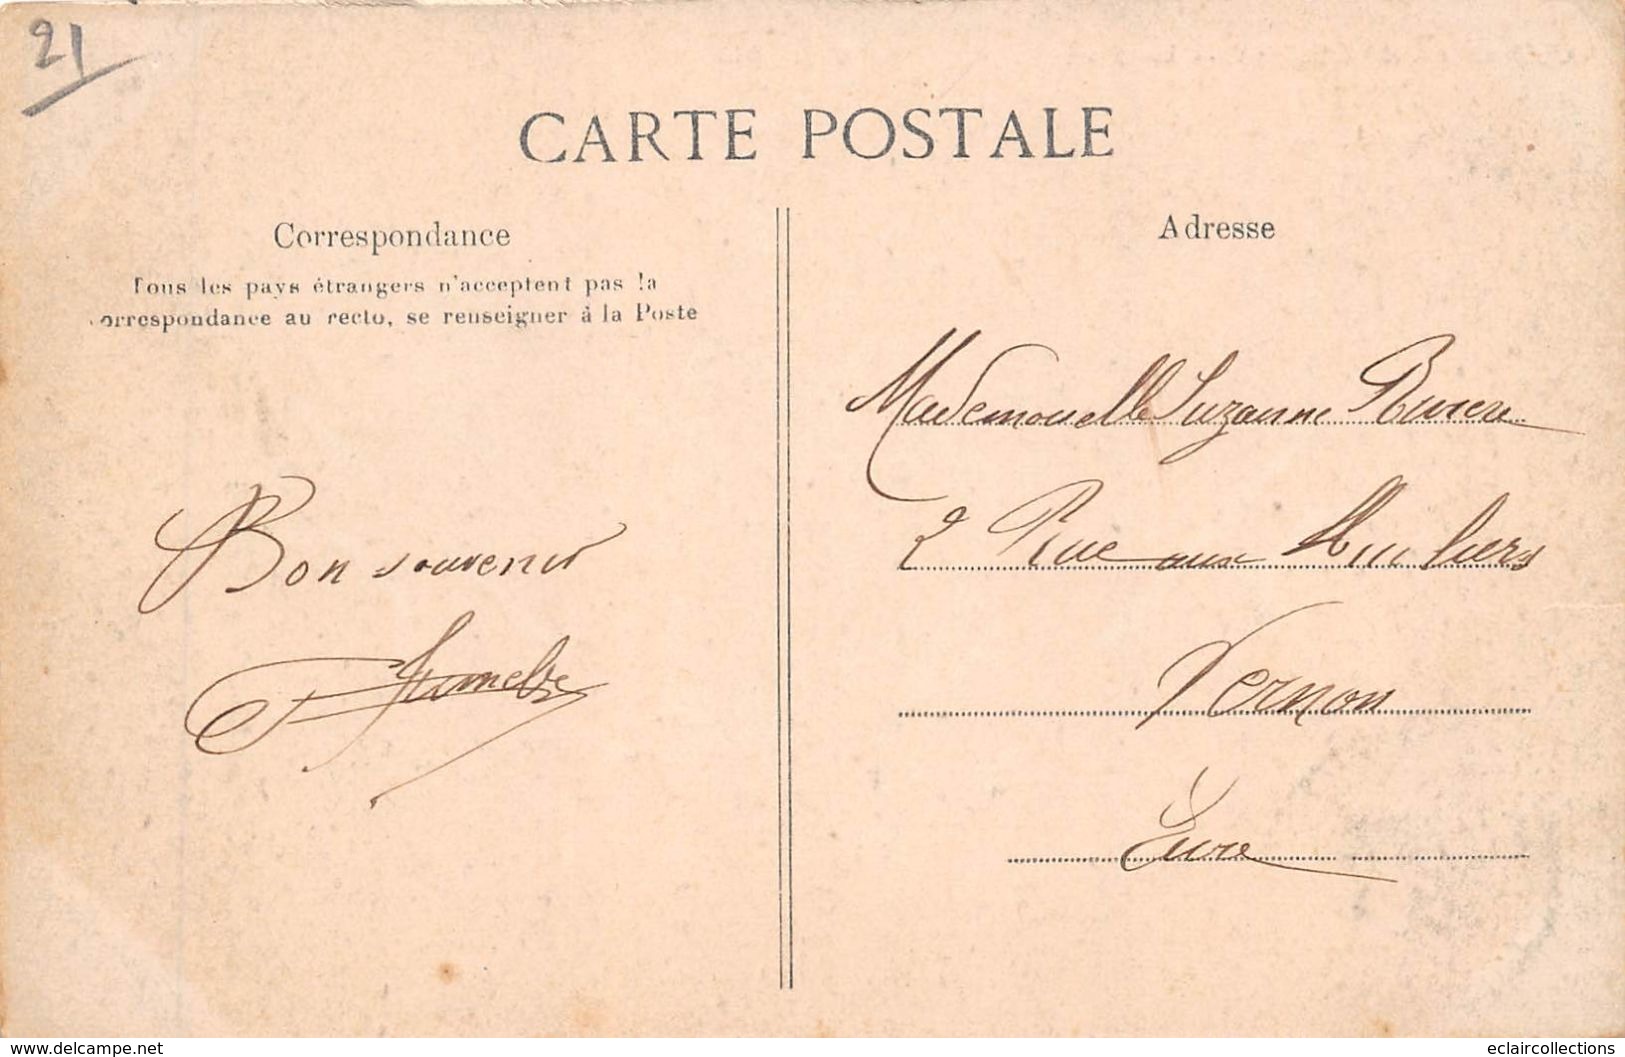 21
CARTE POSTALE
Correspondance
Tous les pays étrangers n'acceptent pas la
correspondance au recto, se renseigner à la Poste
Adresse
Mademoiselle Suzanne Riviere
2 Rue aux
Vernon
Eure
Bon souvenir
www.delcampe.net
eclaircollections